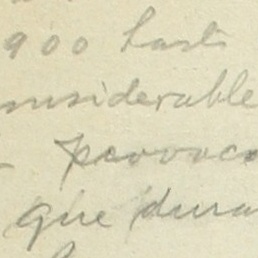 900 hast
nsiderable
provoco
que dura